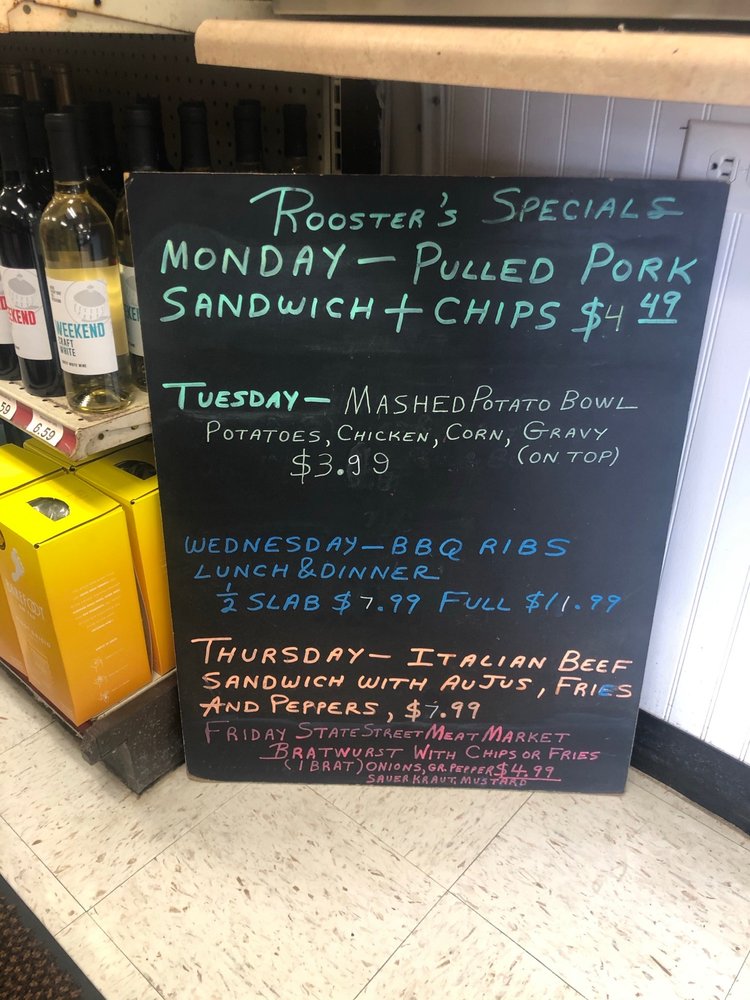 Rooster's Specials
Monday — Pulled Pork
Sandwich + Chips $4 49
Tuesday — Mashed Potato Bowl
Potatoes, Chicken, Corn, Gravy
$3.99 (on top)
Wednesday — BBQ Ribs
Lunch & Dinner
½ Slab $7.99 Full $11.99
Thursday — Italian Beef
Sandwich with Au Jus, Fries
And Peppers, $7.99
Friday State Street Meat Market
Bratwurst With Chips or Fries
(1 Brat) Onions, Gr. Pepper $4.99
Sauerkraut, Mustard
WEEKEND
CRAFT
WHITE
EKEND
59
6.59